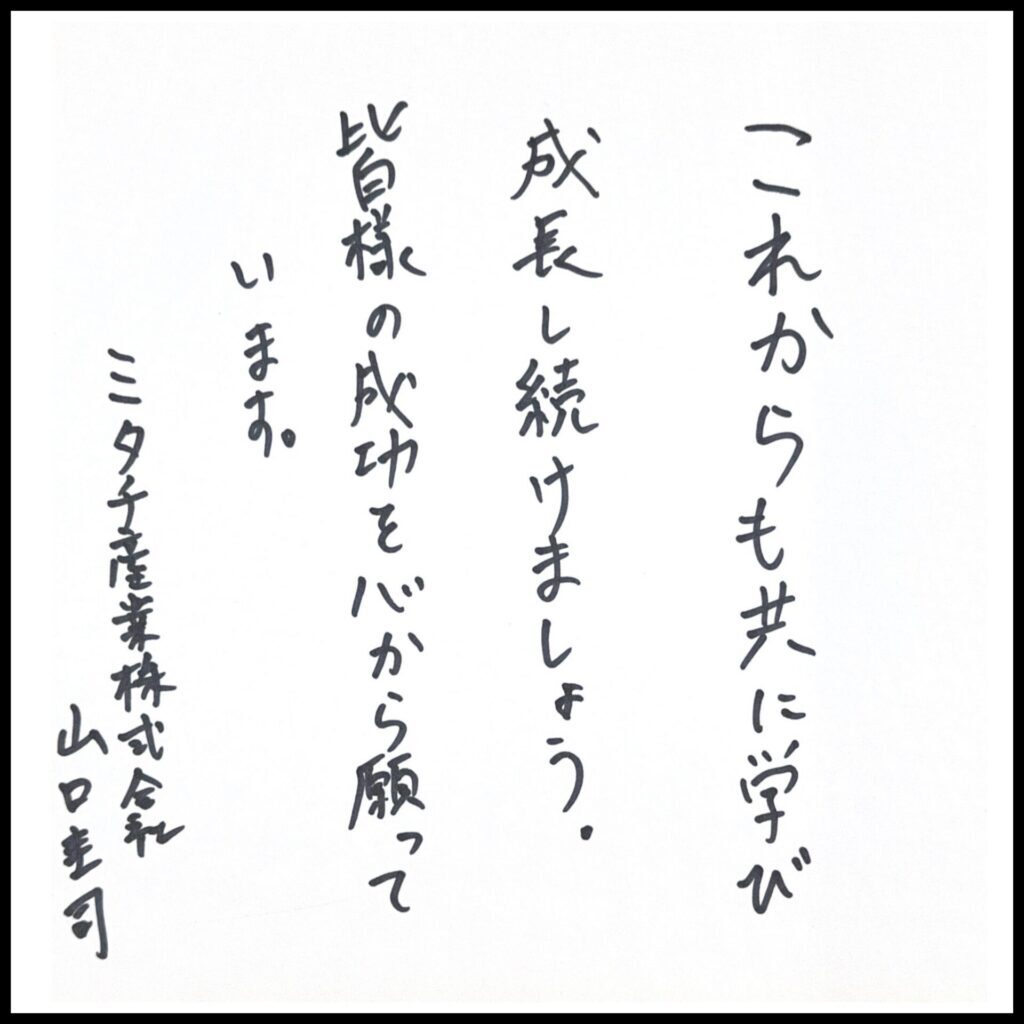 これからも共に学び
成長し続けましょう.
皆様の成功を心から願って
います。
ミタチ産業株式会社
山口圭司